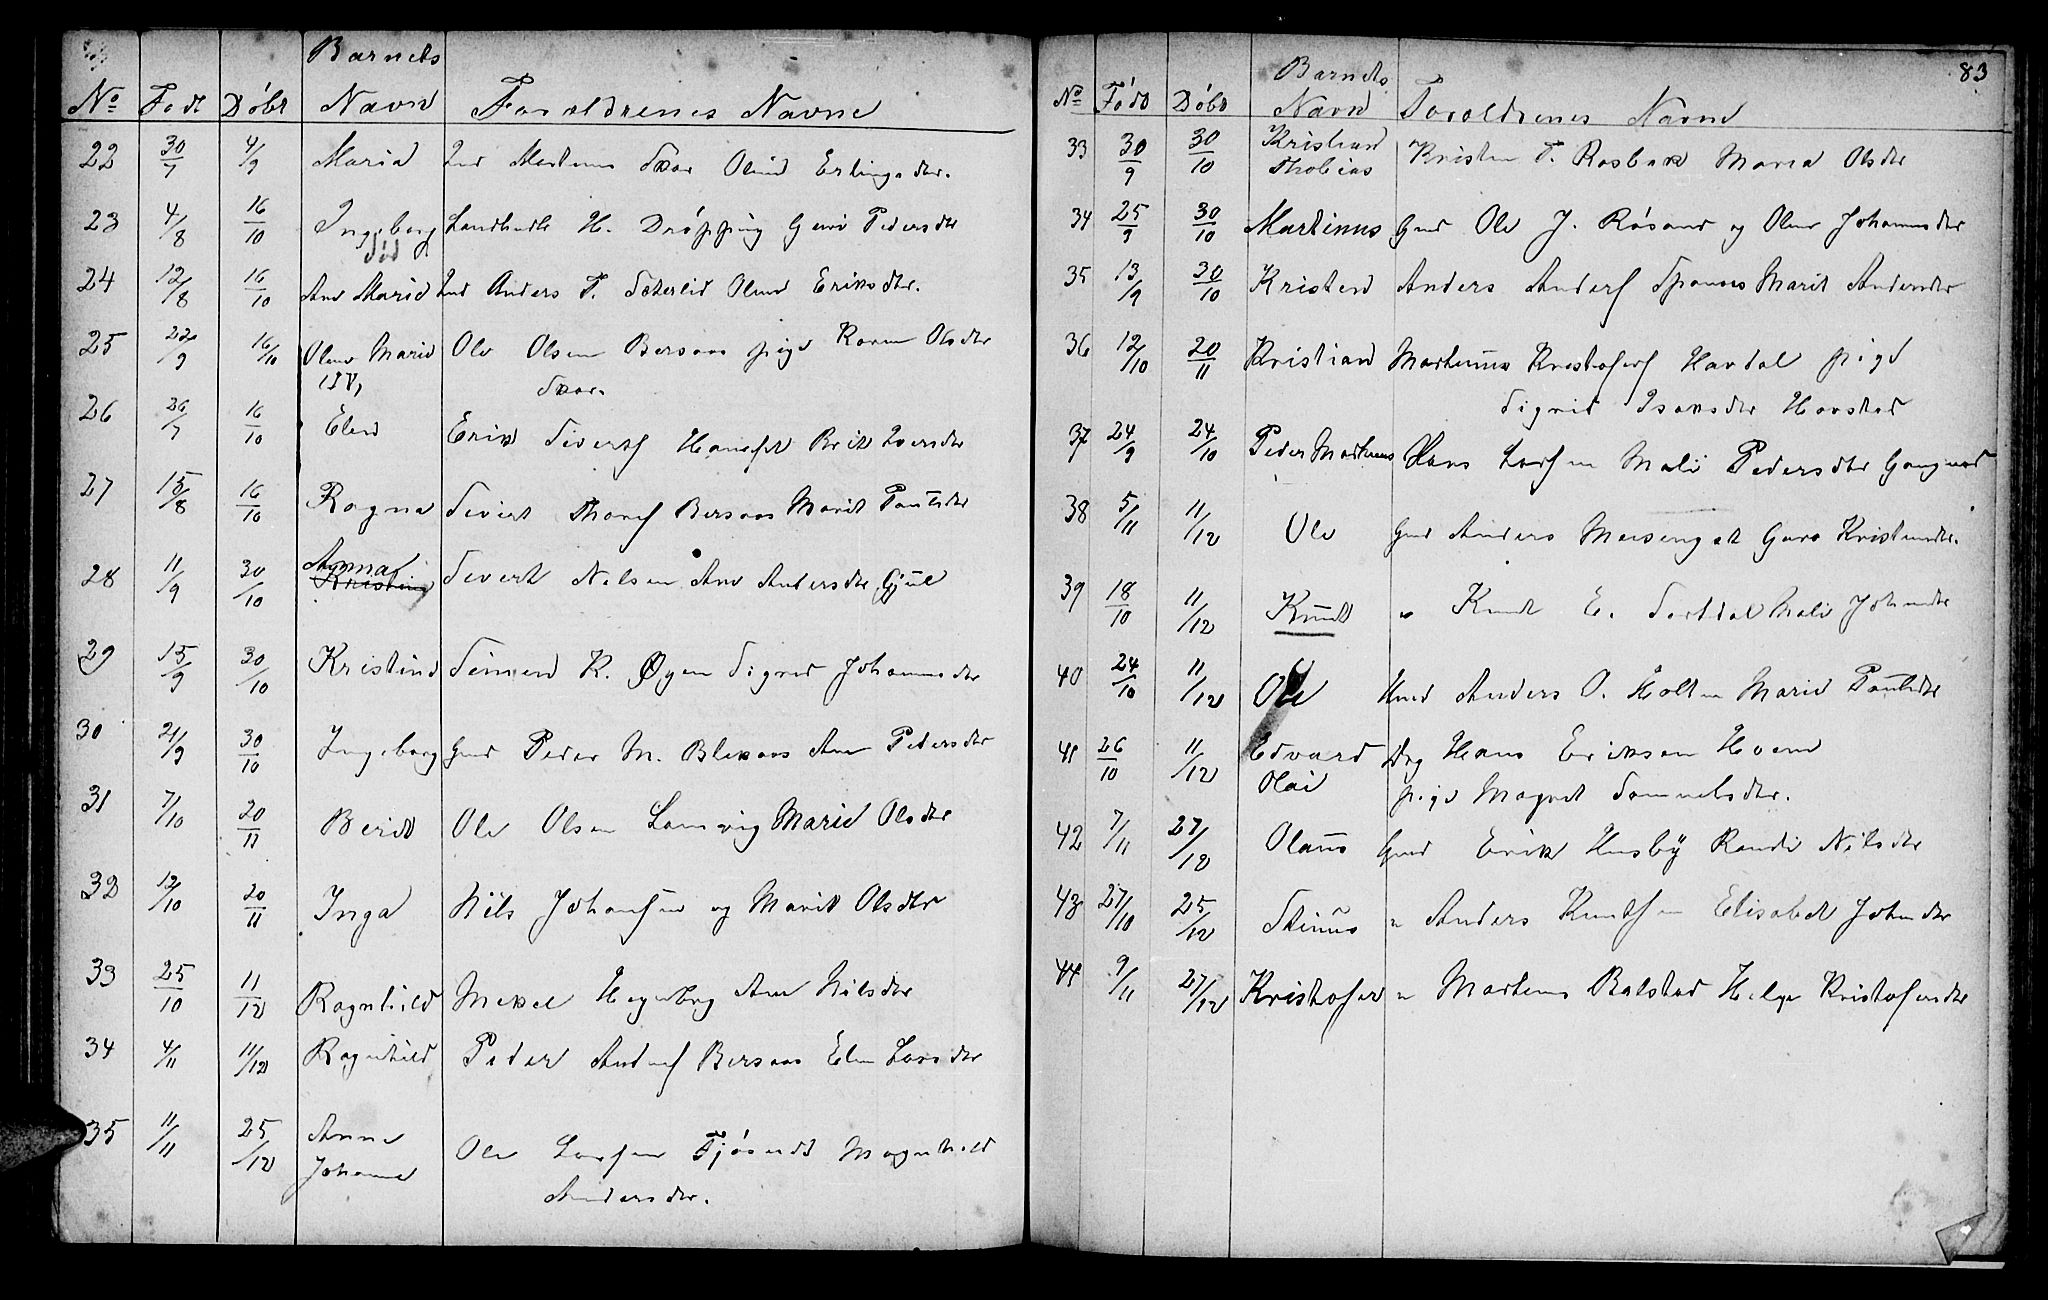 Barnets
No Født Døbt Navn Forældrenes Navne
22 30/7 4/9 Maria Ind Martinus Skar Oline Erlingsdtr.
23 4/8 16/10 Ingeborg H. Drøpping Guro Pedersdtr
død
24 12/8 16/10 Ane Marie Ind Anders T. Sæterlid Oline Eriksdtr.
25 22/9 16/10 Olene Marie Ole Olsen Bersaas pige Karen Olsdtr
Skar.
26 26/7 16/10 Elen Erik Siverts Brit Iversdtr
27 15/8 16/10 Ragna Sivert Bersaas Marit Paulsdtr
Anna
28 11/9 30/10 Kristine Sivert Nilsen Ane Andersdtr Gjul
29 15/9 30/10 Kristine Simen K. Øyen Sigrid Johannesdtr
30 21/9 30/10 Ingeborg Gmd Peder M. Blekaas Ane Pedersdtr
31 7/10 20/11 Berit Ole Olsen Lomvig Marie Olsdtr
32 12/10 20/11 Inga Nils Johansen og Marit Olsdtr
33 25/10 11/12 Ragnhild Mikel Ane Nilsdtr
34 4/11 11/12 Ragnhild Peder Anders Bersaas Elen Larsdtr
35 11/11 25/12 Anne
Johanna Ole Larsen Fjøseidt Magnhild
Andersdtr.
83
Barnets
No Født Døbt Navn Forældrenes Navne
33 30/9 30/10 Kristian
Thobias Kristen T. Rosbak Maria Olsdtr
34 25/9 30/10 Martinus Gmd Ole J. Røsand og Oline Johannesdtr
35 13/9 30/10 Kristen Anders Anders Marit Andersdtr
36 12/10 20/11 Kristian Martinus Kristofers Havdal pige
Sigrid Isaksdtr Havstad
37 24/9 24/10 Peder Martinus Hans Larsen Mali Pedersdtr Gangnæs
38 5/11 11/12 Ole Gmd Anders Meisengst Guro Kristensdtr.
39 18/10 11/12 Knudt " Knut E. Sortdal Mali Johnsdtr
40 24/10 11/12 Ole Hmd Anders O. Holten Marie Paulsdtr
41 26/10 11/12 Edvard
Olai Drg Hans Eriksen Hoem
pige Magnet Samuelsdtr.
42 7/11 27/12 Olaus Gmd Erik Husby Randi Nilsdtr
43 27/10 25/12 Stinus " Anders Knutsen Elisabet Johnsdtr
44 9/11 27/12 Kristofer " Martinus Bolstad Helga Kristofersdtr